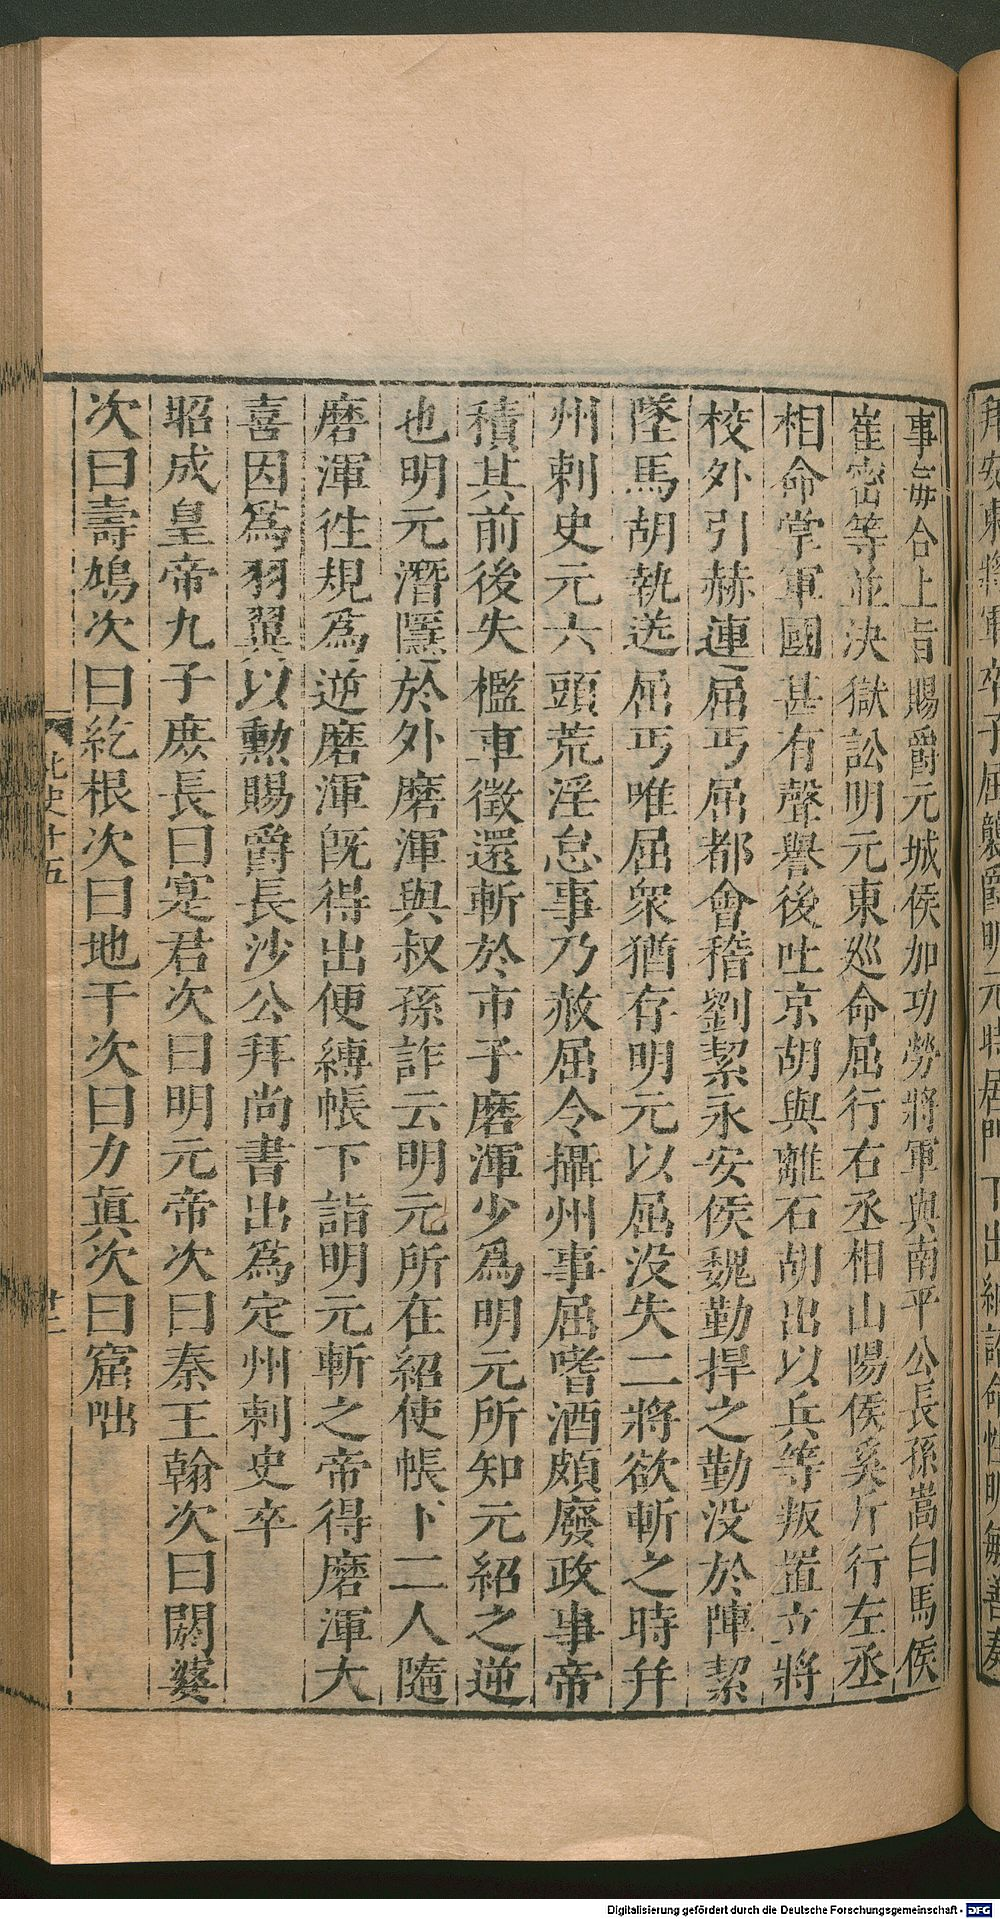 事每合上旨賜爵元城侯加功勞將軍與南平公長孫嵩白馬侯
崔密等並決獄訟明元東廵命屈行右丞相山陽侯奚斤行左丞
相命掌軍國甚有聲譽後吐京胡與離石胡出以兵等叛置立將
校外引赫連屈丐屈都會稽劉絜永安侯魏勤捍之勤没於陣絜
墜馬胡執送屈丐唯屈衆猶存明元以屈没失二將欲斬之時并
州刺史元六頭荒淫怠事乃赦屈令攝州事屈嗜酒頗廢政事帝
積其前後失檻車徵還斬於市子磨渾少爲明元所知元紹之逆
也明元潛隱於外磨渾與叔孫詐云明元所在紹使帳下二人隨
磨渾徃規爲逆磨渾旣得出便縛帳下詣明元斬之帝得磨渾大
喜因爲羽翼以勲賜爵長沙公拜尚書出爲定州刺史卒
昭成皇帝九子庶長曰寔君次曰明元帝次曰秦王翰次曰閼婆
次曰壽鳩次曰紇根次曰地干次曰力眞次曰窟咄
北史十五
廿二
Digitalisierung gefördert durch die Deutsche Forschungsgemeinschaft - DFG